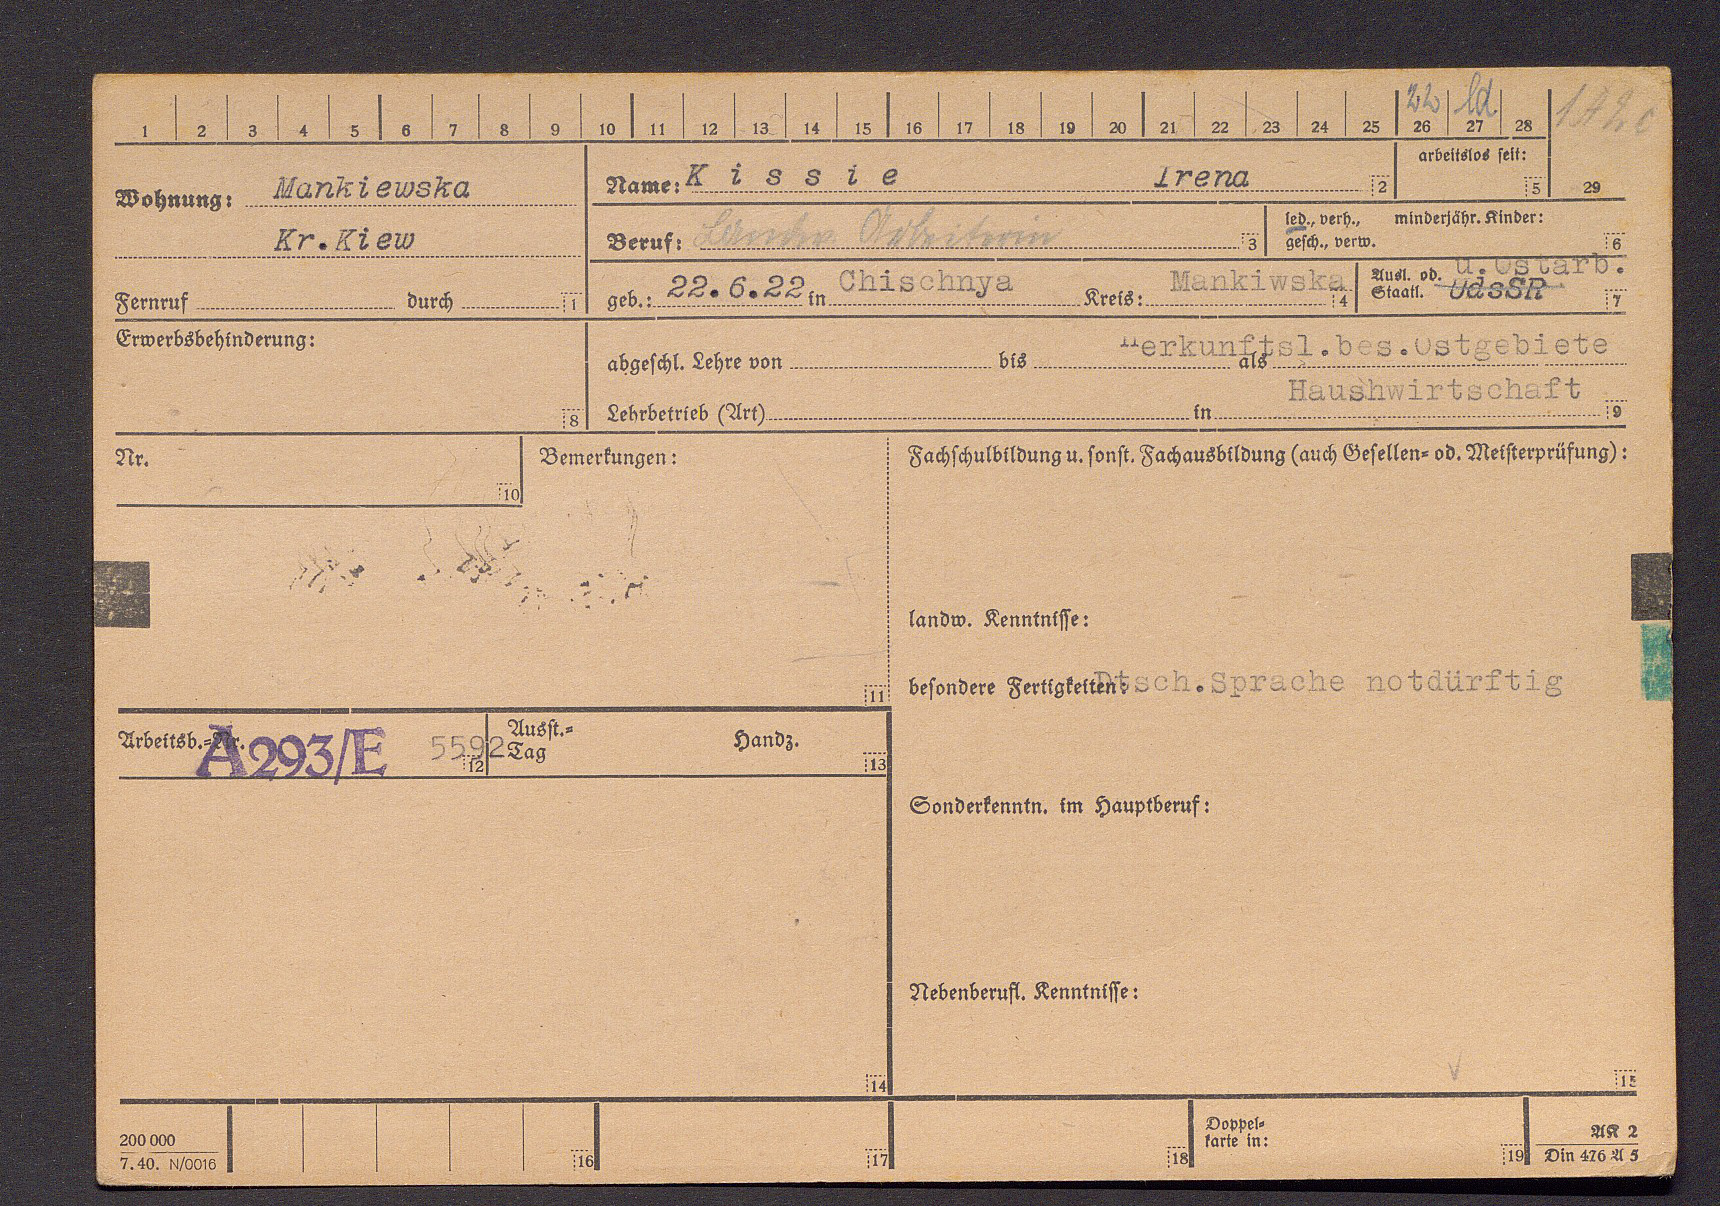 1 2 3 4 5 6 7 8 9 10 11 12 13 14 15 16 17 18 19 20 21 22 23 24 25 26 27 28 29
22 ld
142c
Wohnung: Mankiewska
Kr.Kiew
Fernruf durch 1
Name: K i s s i e Irena 2
arbeitslos seit: 5
Beruf: Arbeiterin 3
led., verh., gesch., verw.
minderjähr. Kinder: 6
geb.: 22.6.22 in Chischnya Kreis: Mankiwska 4
Ausl. od. Staatl. u.Ostarb.
UdsSR 7
Erwerbsbehinderung: 8
Herkunftsl.bes.Ostgebiete
abgeschl. Lehre von bis als
Haushwirtschaft
Lehrbetrieb (Art) in 9
Nr. 10
Bemerkungen: 11
Fachschulbildung u. sonst. Fachausbildung (auch Gesellen= od. Meisterprüfung):
landw. Kenntnisse:
besondere Fertigkeiten: Dtsch.Sprache notdürftig
Arbeitsb.=Nr. A293/E 5592 12
Ausst.=
Tag
Handz. 13
Sonderkenntn. im Hauptberuf:
Nebenberufl. Kenntnisse:
14 15
200 000
7. 40. N/0016
16 17 18
Doppel=
karte in: 19
AK 2
Din 476 A 5